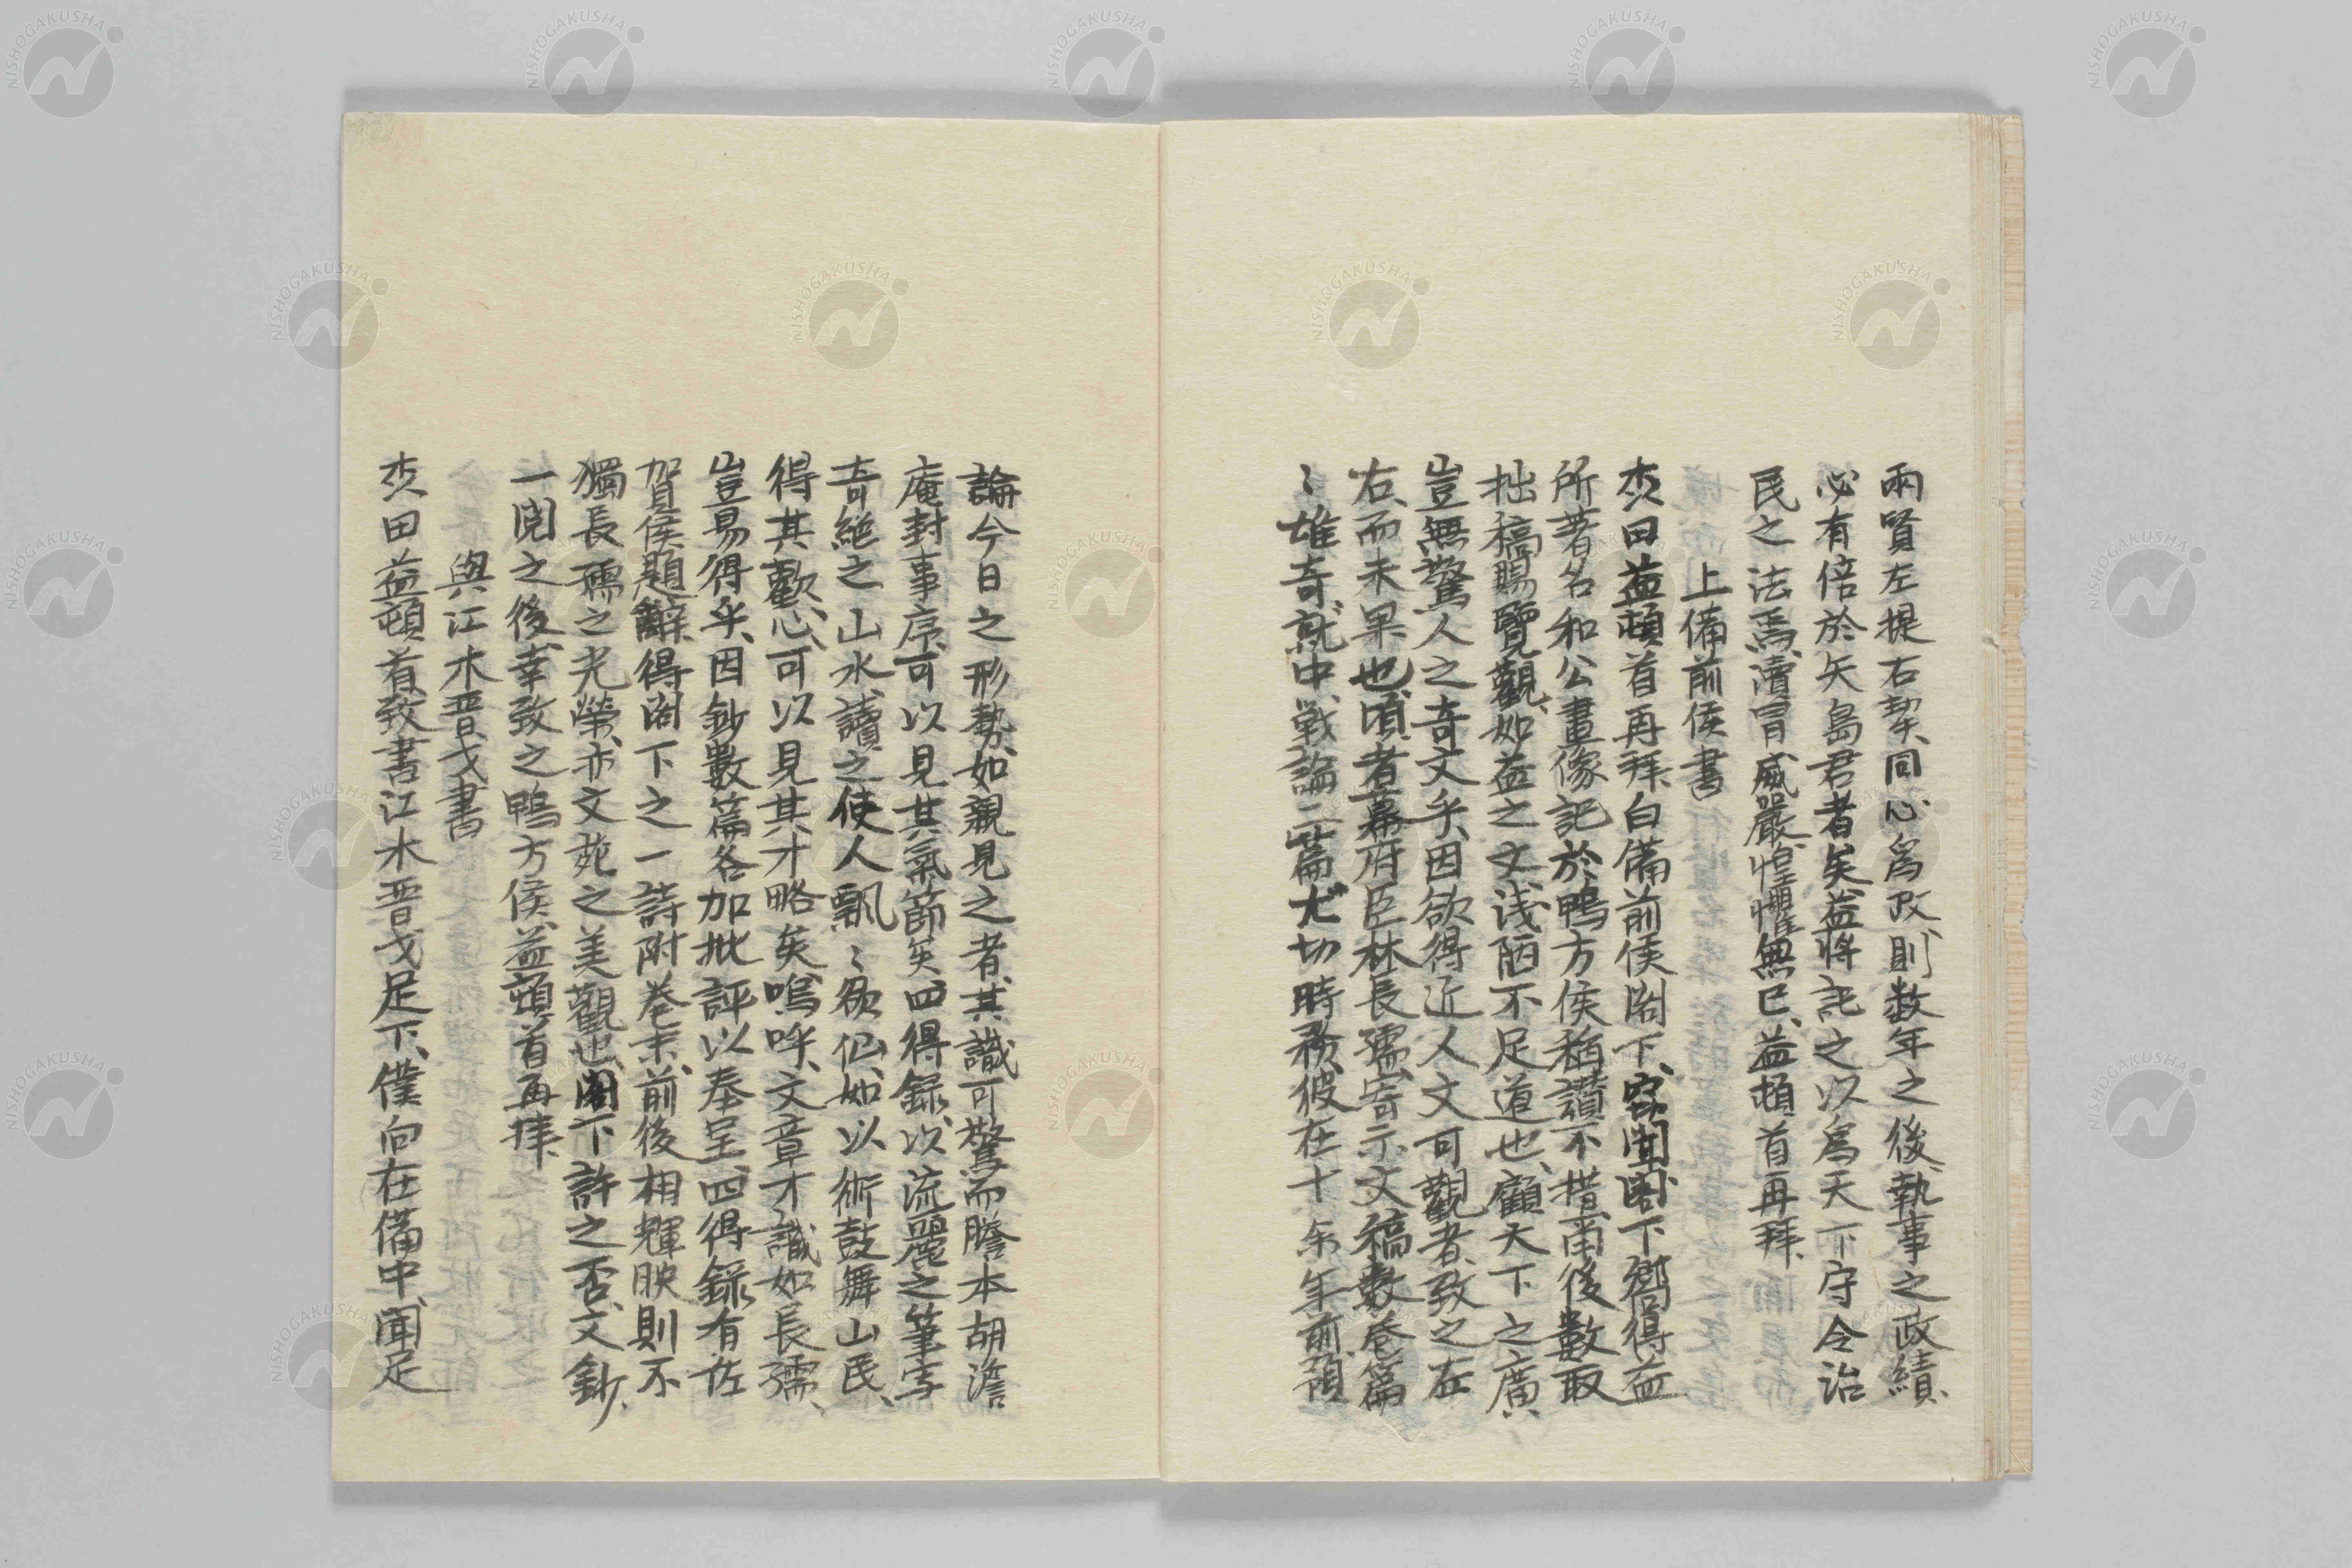 兩賢左提右挈、同心爲政、則数年之後、執事之政績、
必有倍於矢島君者矣、益將記之以爲天下守令治
民之法焉、瀆冒威嚴、惶懼無已、益頓首再拜、
上備前侯書
杰田益頓首再拜、白備前侯閣下、窃聞閣下嚮得益
所著名和公畫像記於鴨方侯、稱讃不措、甭後數取
拙稿賜覽觀、如益之文、浅陋不足道也、顧天下之廣、
豈無驚人之奇文乎、因欲得近人文可觀者、致之左
右、而未果也、頃者幕府臣林長孺寄示文稿數巻、篇
〻雄奇、就中、戦論二篇尤切時務、彼在十余年前、預
論今日之形勢、如親見之者、其識可驚、而謄本胡澹
庵封事序、可以見其氣節矣、四得録、以流麗之筆寫
奇絶之山水、讀之使人飄〻欲仙、如以術鼓舞山民、
得其歡心、可以見其才略矣、嗚呼、文章才識如長孺、
豈易得乎、因鈔數篇各加批評以奉呈、四得録有佐
賀侯題辭、得閣下之一詩附巻末、前後相輝映、則不
獨長孺之光榮、亦文苑之美觀也、閣下許之否、文鈔、
一閲之後、幸致之鴨方侯、益頓首再拝、
與江木晋戈書
杰田益頓首致書江木晋戈足下、僕向在備中、聞足